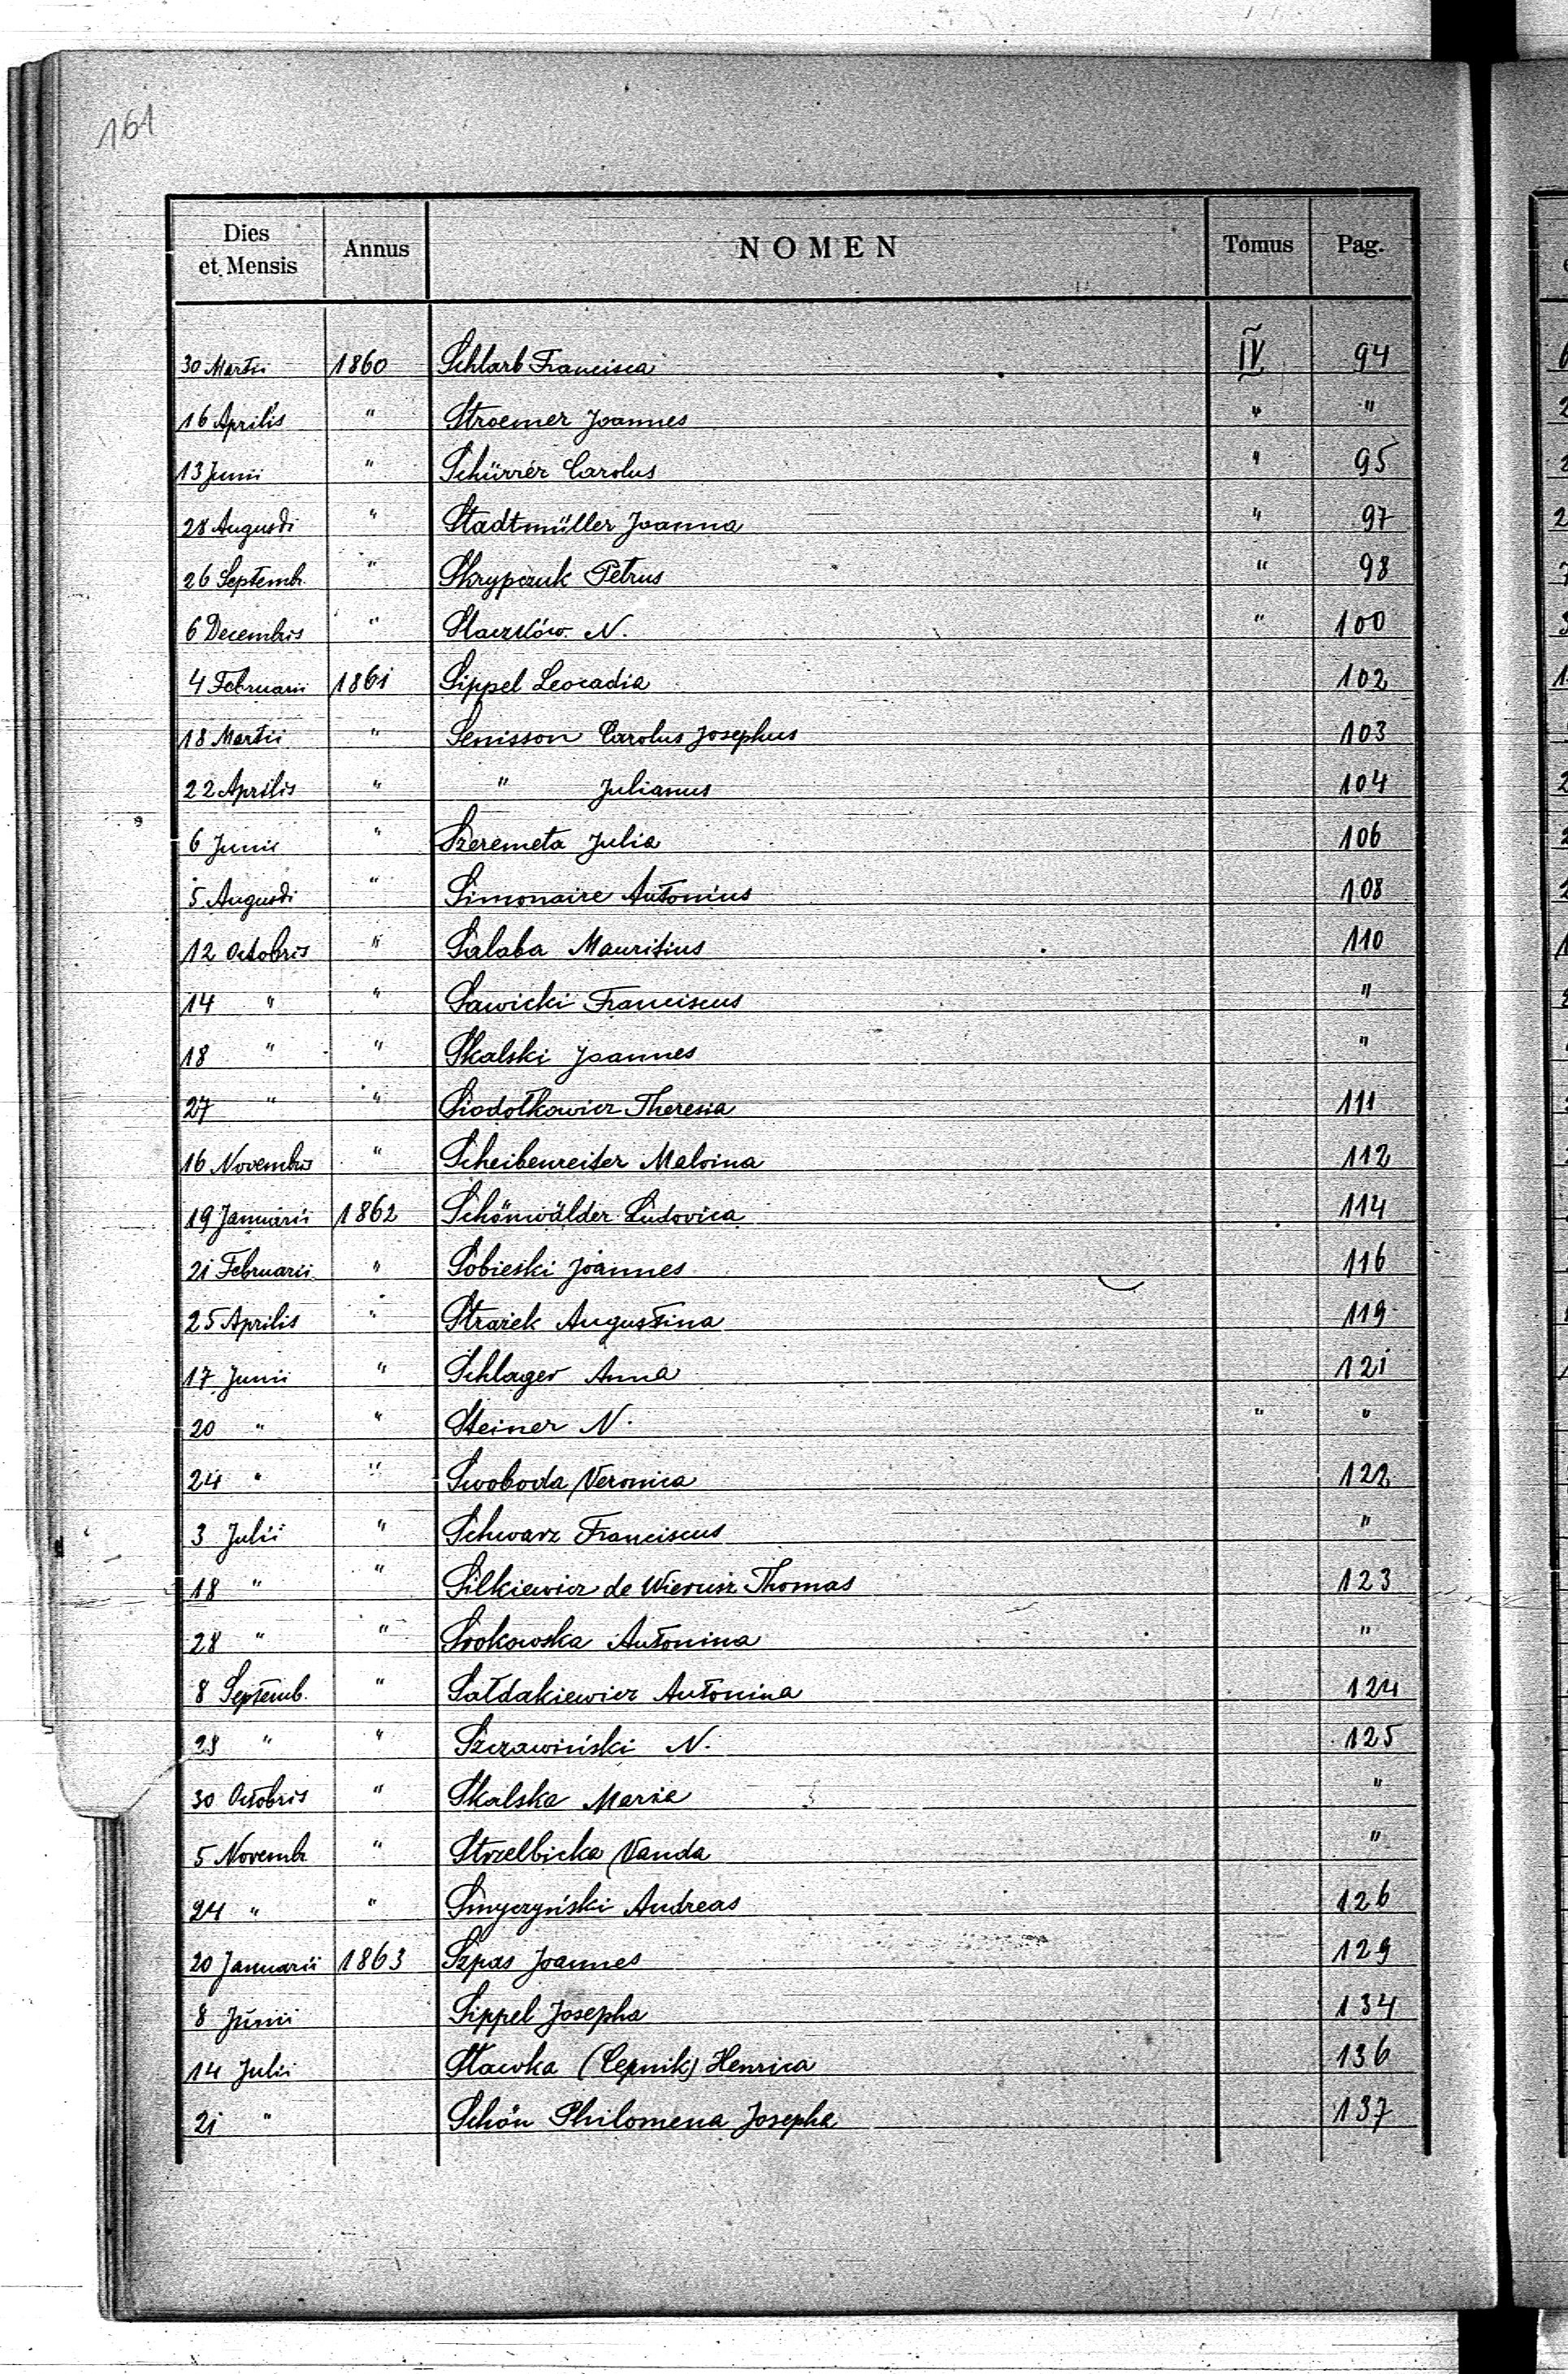 161
Dies et Mensis Annus NOMEN Tomus Pag.
30 Martii 1860 Schlarb Francisca IV 94
16 Aprilis " Stroemer Joannes " "
13 Junii " Schürrer Carolus " 95
28 Augusti " Stadtmüller Joanna " 97
26 Septemb. " Skrypczuk Petrus " 98
6 Decembris " N. " 100
4 Februarii 1861 Sippel Leocadia 102
18 Martii " Senisson Carolus Josephus 103
22 Aprilis " " Julianus 104
6 Junii " Szeremeta Julia 106
5 Augusti " Simonaire Antonius 108
12 Octobris " Salaba Mauritius 110
14 " " Sawicki Franciscus "
18 " " Skalski Joannes "
27 " " Siodołkowicz Theresia 111
16 Novembris " Scheibenreiter Malvina 112
19 Januarii 1862 Schönwälder Ludovica 114
21 Februarii " Sobieski Joannes 116
25 Aprilis " Strażek Augustina 119
17 Junii " Schlager Anna 121
20 " " Steiner N. " "
24 " " Swoboda Veronica 122
3 Julii " Schwarz Franciscus "
18 " " Silkiewicz de Wierusz Thomas 123
28 " " Srokowska Antonina "
8 Septemb. " Sałdakiewicz Antonina 124
28 " " Szczawiński N. 125
30 Octobris " Skalska Maria "
5 Novemb. " Strzelbicka Vanda "
24 " " Smyczyński Andreas 126
20 Januarii 1863 Szpas Joannes 129
8 Junii Sippel Josepha 134
14 Julii Sławka (Cepnik) Henrica 136
21 " Schön Philomena Josepha 137